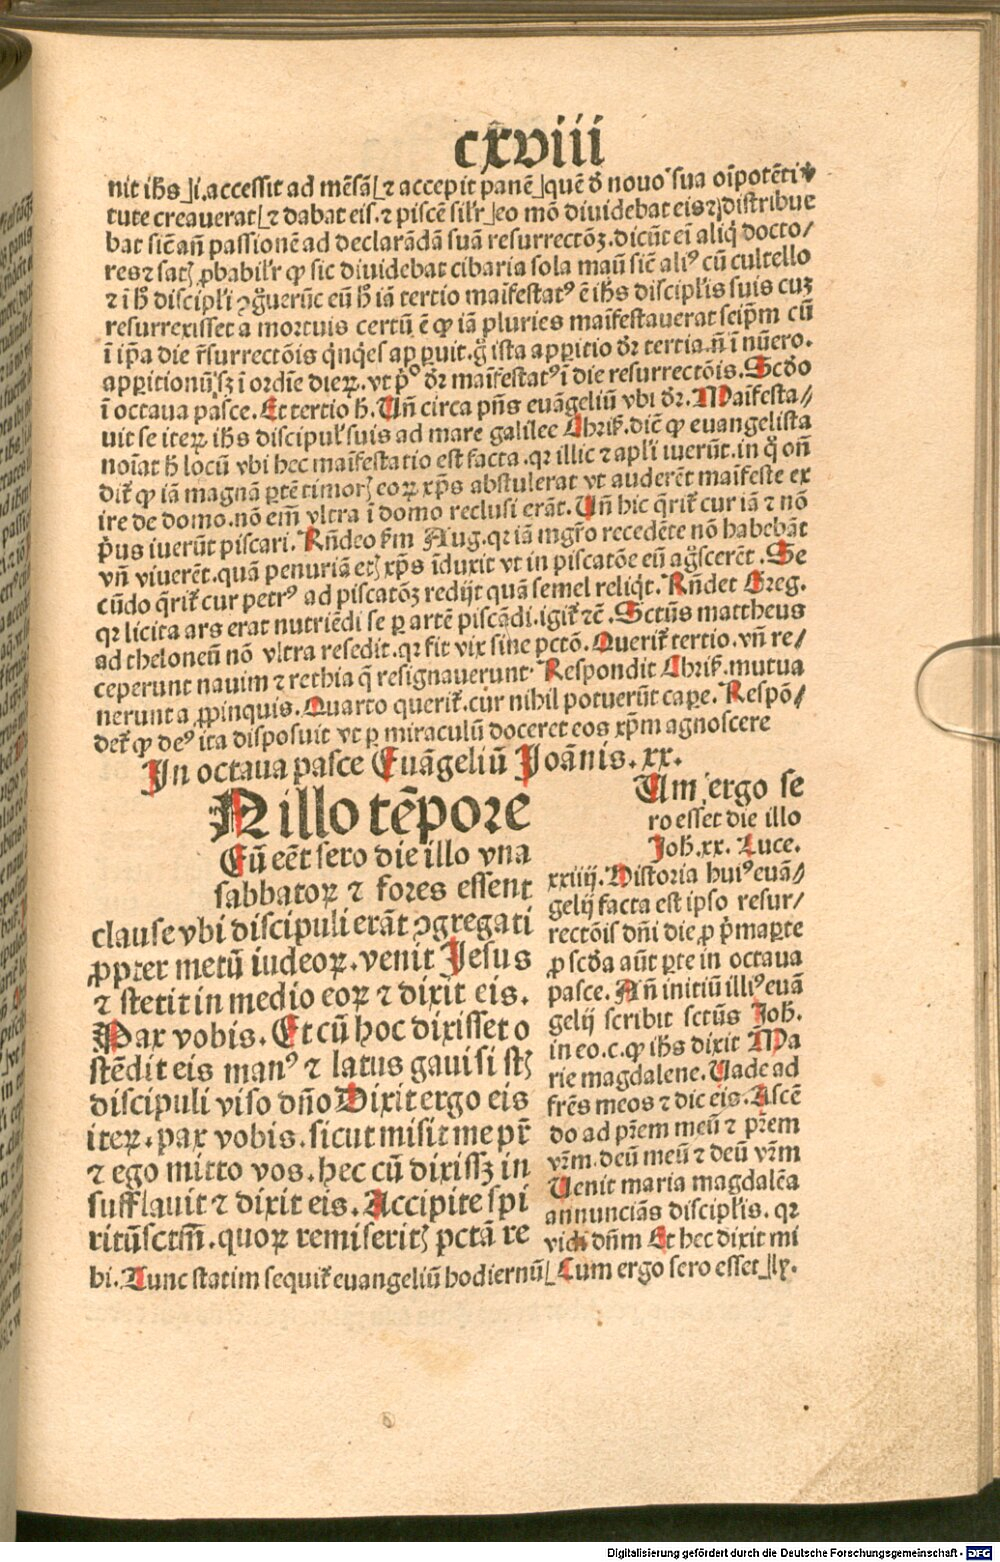 cxviii
nit ihs̄ ⌋i. accessit ad mēsā⌊ ⁊ accepit panē⌋ quē ď nouo sua oīpotēti
tute creauerat⌊ ⁊ dabat eis. ⁊ piscē silr̄⌋ eo mō diuidebat eis ⁊ distribue
bat siē añ passionē ad declarādā suā resurrectōꝫ. dicūt ei aliq̄ docto/
res ⁊ satꝫ ꝓbabilr̄ ꝙ sic diuidebat cibaria sola manū siē aliꝰ cū cultello
⁊ i h̄ discipl̄i ꝯg̃uerūt eū h̄ iā tertio maīfestatꝰ ē ihs̄ discipl̄is suis cuꝫ
resurrexisset a mortuis certū ē ꝙ iā pluries maīfestauerat seip̄m cū
ī ip̄a die r̄surrectōis q̇nq̇es apꝑuit. g̊ ista apꝑitio dr̄ tertia. ñ ī nūero.
apꝑitionū sꝫ ī ordīe dieꝝ. vt pº dr̄ maīfestatꝰ ī die resurrectōis. Scďo
ī octaua pasce. Et tertio h̄. Uñ circa pn̄s euāgeliū vbi dr̄. Maīfesta//
uit se iteꝝ ihs̄ discipul̄ suis ad mare galilee Chrisꝰ. diē ꝙ euangelista
noīat h̄ locū vbi hec maīfestatio est facta. qꝛ illic ⁊ apl̄i iuerūt. in q̄ oñ
dit̄ ꝙ iā magnā ꝑtē timorꝫ eoꝝ xp̄s abstulerat vt auderēt maīfeste ex
ire de domo. nō eīm vltra ī domo reclusi erāt. Uñ hic q̄rit̄ cur iā ⁊ nō
p̄us iuerūt piscari. Rñdeo ẜm Aug. qꝛ iā mgr̄o recedēte nō habebāt
vñ viuerēt. quā penuriā etꝫ xp̄s īduxit vt in piscatōe eū ag̃scerēt. Se
cūdo q̄rit̄ cur petrꝰ ad piscatōꝫ redijt quā semel reliq̇t. Rñdet Greg.
qꝛ licita ars erat nutriēdi se ꝑ artē piscādi. igit̄ ⁊ē. Sctūs mattheus
ad theloneū nō vltra resedit. qꝛ fit vix sine pctō. Querit̄ tertio. vñ re/
ceperunt nauim ⁊ rethia q̄ resignauerunt. Respondit Chrisꝰ. mutua
nerunt a ꝓpinquis. Quarto querit̄. cur nihil potuerūt caꝑe. Respō/
det̄ ꝙ deꝰ ita disposuit vt ꝑ miraculū doceret eos xp̄m agnoscere
In octaua pasce Euāgeliū Joānis. xx.
N illo tēpore
Cū eēt sero die illo vna
sabbatoꝝ ⁊ fores essent
clause vbi discipuli erāt ꝯgregati
ꝓpter metū iudeoꝝ. venit Jesus
⁊ stetit in medio eoꝝ ⁊ dixit eis.
Pax vobis. Et cū hoc dixisset o
stēdit eis manꝰ ⁊ latus gauisi stꝫ
discipuli viso dño Dixit ergo eis
iteꝝ. pax vobis. sicut misit me pr̄
⁊ ego mitto vos. hec cū dixissꝫ in
sufflauit ⁊ dixit eis. Accipite spi
ritūsctm̄. quoꝝ remiseritꝫ pctā re
Um ergo se
ro esset die illo
Joh̄. xx. Luce.
xxiiij. Historia huiꝰ euā//
gelij facta est ipso resur/
rectōis dñi die ꝓ p̄ma ꝑte
ꝓ scďa aūt ꝑte in octaua
pasce. Añ initiū illiꝰ euā
gelij scribit sctūs Joh̄.
in eo. c. ꝙ ihs̄ dixit Ma
rie magdalene. Uade ad
frēs meos ⁊ dic eis. Ascē
do ad pr̄em meū ⁊ pr̄em
vr̄m. deū meū ⁊ deū vr̄m
Uenit maria magdalēa
annunciās discipl̄is. qꝛ
vidi dñm Et hec dixit mi
bi. Tunc statim sequit̄ euangeliū hodiernū⌊ Cum ergo sero esset⌋
Digitalisierung gefördert durch die Deutsche Forschungsgemeinschaft - DFG